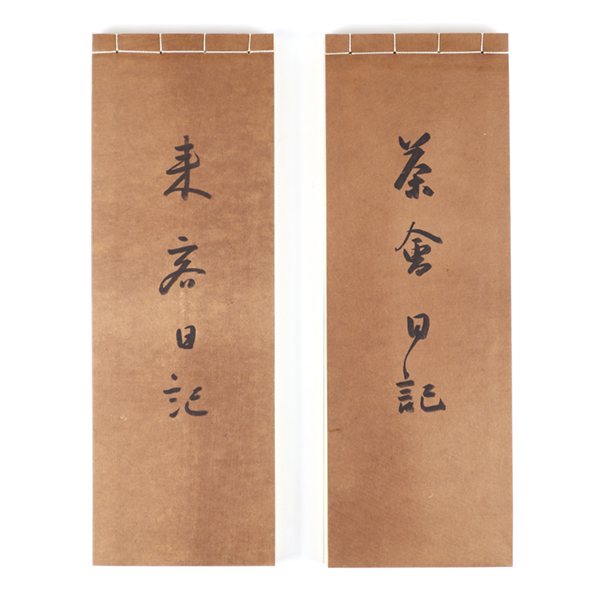 茶會日記
来客日記